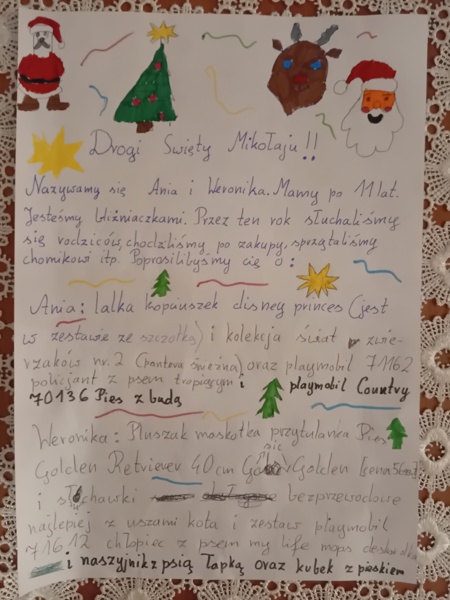 Drogi Święty Mikołaju!!
Nazywamy się Ania i Weronika. Mamy po 11 lat.
Jesteśmy bliźniaczkami. Przez ten rok słuchaliśmy
się rodziców, chodziliśmy po zakupy, sprzątaliśmy
chomikowi itp. Poprosilibyśmy cię o:
Ania: lalka kopciuszek disney princes (jest
w zestawie ze szczotką) i kolekcja świat zwie-
rzaków nr. 2 (pantera śnieżna) oraz playmobil 71162
policjant z psem tropiącym i playmobil Country
70136 Pies z budą
Weronika: Pluszak maskotka przytulanka Pies
Golden Retriever 40 cm się Golden
i słuchawki bezprzewodowe
najlepiej z uszami kota i zestaw playmobil
71612 chłopiec z psem my life
i naszyjnik z psią łapką oraz kubek z pieskiem